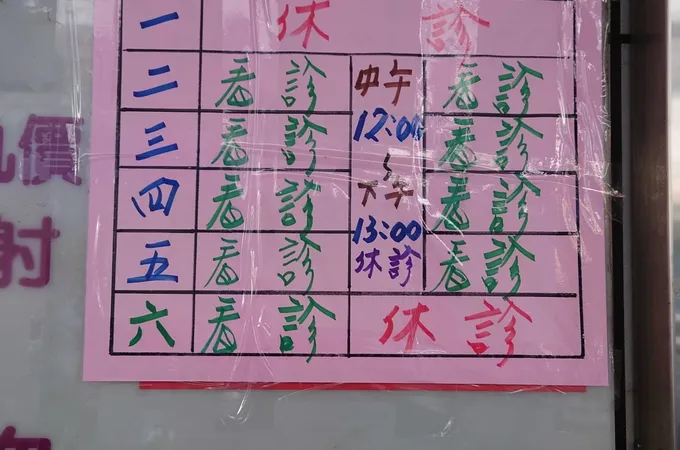 一 休 診
二 看 診 中午 看 診
三 看 診 12:00 看 診
四 看 診 下午 看 診
五 看 診 13:00 休診 看 診
六 看 診 休 診
價
射